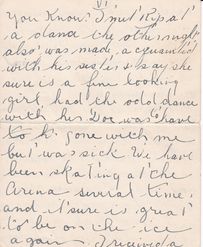 VI
You Know? I met Rip at
a dance the other night
also was made acquainted
with his sister & say she
sure is a fine looking
girl, had the odd dance
with her Doc was to have
gone with me
but was sick We have
been skating at the
Arena several time,
and it sure is great
to be on the ice
again. I received a